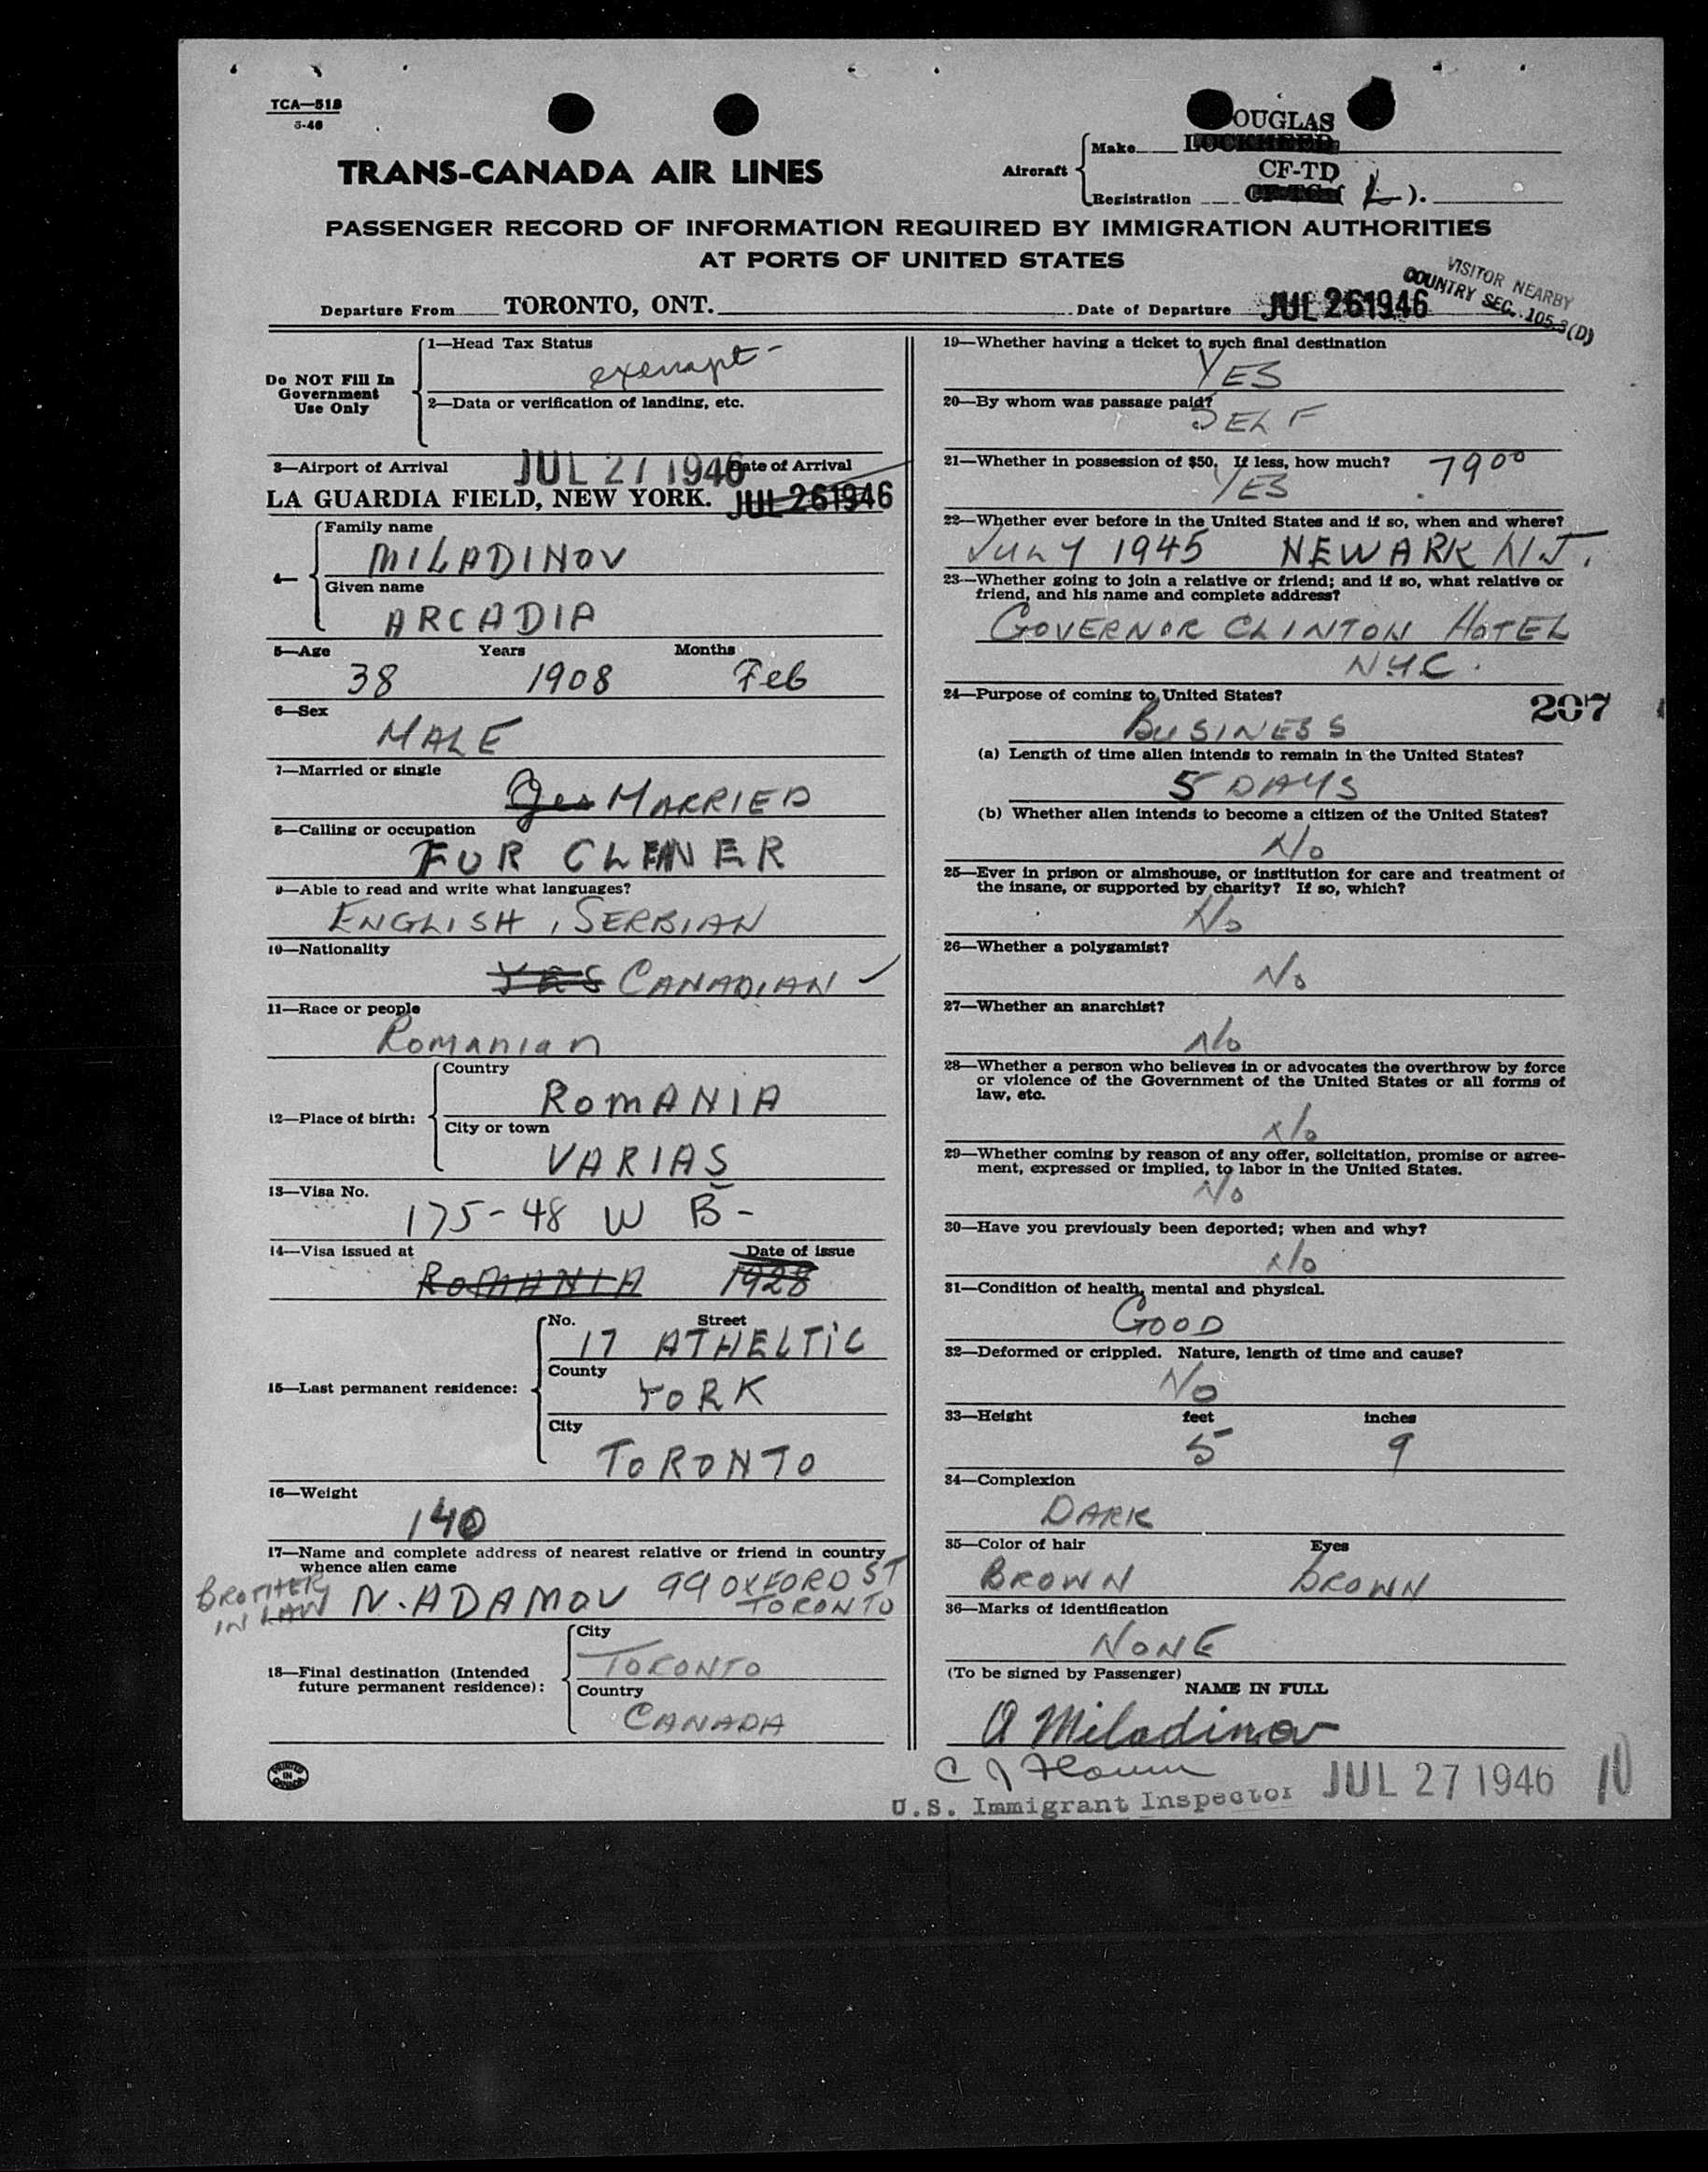 TCA—518
5-46
TRANS-CANADA AIR LINES
Aircraft
Make
OUGLAS
LOCKHEED
Registration
CF-TD
(L).
PASSENGER RECORD OF INFORMATION REQUIRED BY IMMIGRATION AUTHORITIES
AT PORTS OF UNITED STATES
VISITOR NEARBY
COUNTRY SEC. 105.3(D)
Departure From TORONTO, ONT.
Date of Departure JUL 26 1946
Do NOT Fill In
Government
Use Only
1—Head Tax Status
exempt -
2—Data or verification of landing, etc.
3—Airport of Arrival
JUL 27 1946
Date of Arrival
LA GUARDIA FIELD, NEW YORK. JUL 26 1946
4—
Family name
MILADINOV
Given name
ARCADIA
5—Age Years Months
38 1908 Feb
6—Sex
MALE
7—Married or single
Yes MARRIED
8—Calling or occupation
FUR CLEANER
9—Able to read and write what languages?
ENGLISH, SERBIAN
10—Nationality
YES CANADIAN
11—Race or people
Romanian
12—Place of birth:
Country
ROMANIA
City or town
VARIAS
13—Visa No.
175-48 W B -
14—Visa issued at Date of issue
ROMANIA 1928
15—Last permanent residence:
No. Street
17 ATHELTIC
County
YORK
City
TORONTO
16—Weight
140
17—Name and complete address of nearest relative or friend in country
whence alien came
BROTHER
IN LAW
N. ADAMOV 99 OXFORD ST
TORONTO
18—Final destination (Intended
future permanent residence):
City
TORONTO
Country
CANADA
PRINTED
IN
CANADA
19—Whether having a ticket to such final destination
YES
20—By whom was passage paid?
SELF
21—Whether in possession of $50. If less, how much?
YES 79 00
22—Whether ever before in the United States and if so, when and where?
JULY 1945 NEWARK N.J.
23—Whether going to join a relative or friend; and if so, what relative or
friend, and his name and complete address?
GOVERNOR CLINTON HOTEL
NYC.
24—Purpose of coming to United States?
207
BUSINESS
(a) Length of time alien intends to remain in the United States?
5 DAYS
(b) Whether alien intends to become a citizen of the United States?
No
25—Ever in prison or almshouse, or institution for care and treatment of
the insane, or supported by charity? If so, which?
No
26—Whether a polygamist?
No
27—Whether an anarchist?
No
28—Whether a person who believes in or advocates the overthrow by force
or violence of the Government of the United States or all forms of
law, etc.
No
29—Whether coming by reason of any offer, solicitation, promise or agree-
ment, expressed or implied, to labor in the United States.
No
30—Have you previously been deported; when and why?
No
31—Condition of health, mental and physical.
GOOD
32—Deformed or crippled. Nature, length of time and cause?
No
33—Height feet inches
5 9
34—Complexion
DARK
35—Color of hair Eyes
BROWN BROWN
36—Marks of identification
NONE
(To be signed by Passenger)
NAME IN FULL
A Miladinov
U.S. Immigrant Inspector JUL 27 1946